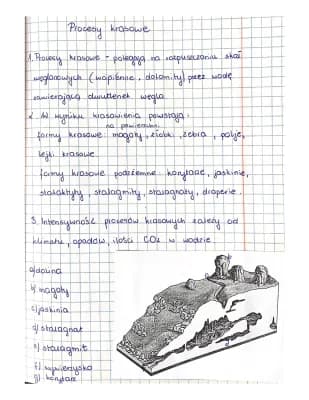 Procesy krasowe
1. Procesy krasowe - polegają na rozpuszczaniu skał
węglanowych (wapienie, dolomity) przez wodę
zawierającą dwutlenek węgla
2. W wyniku krasowienia powstają:
na powierzchni
formy krasowe: mogoty, żłobki, żebra, polje,
lejki krasowe
formy krasowe podziemne: korytarze, jaskinie,
stalaktyty, stalagmity, stalagnaty, draperie.
3. Intensywność procesów krasowych zależy od
klimatu, opadów, ilości CO2 w wodzie
a) dolina
b) mogoty
c) jaskinia
d) stalagnat
e) stalagmit
f) wywierzysko
g) korytarz